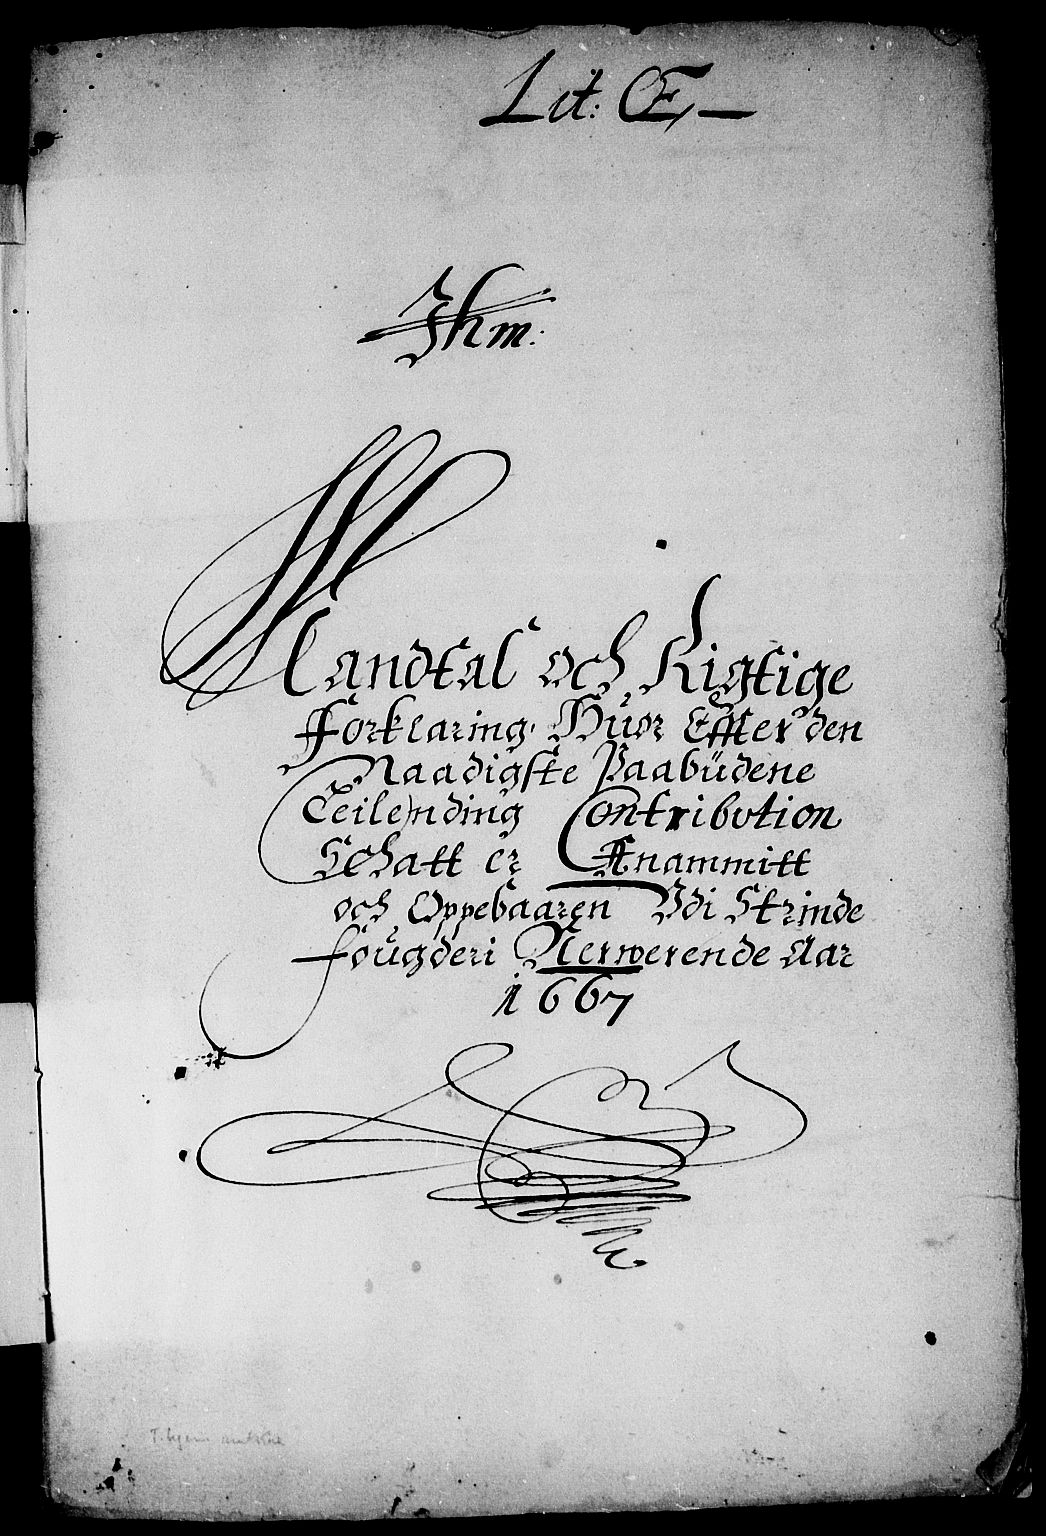 Lit: Œ,
Jhm:
Mandtal och Rigtige
Forklaring, Huor Effter den
Naadigste Paabüdene
Ceilending Contribution
Schatt er Annammitt
och Oppebaaren Vdi Strinde
fougderi Nerwerende Aar
1667